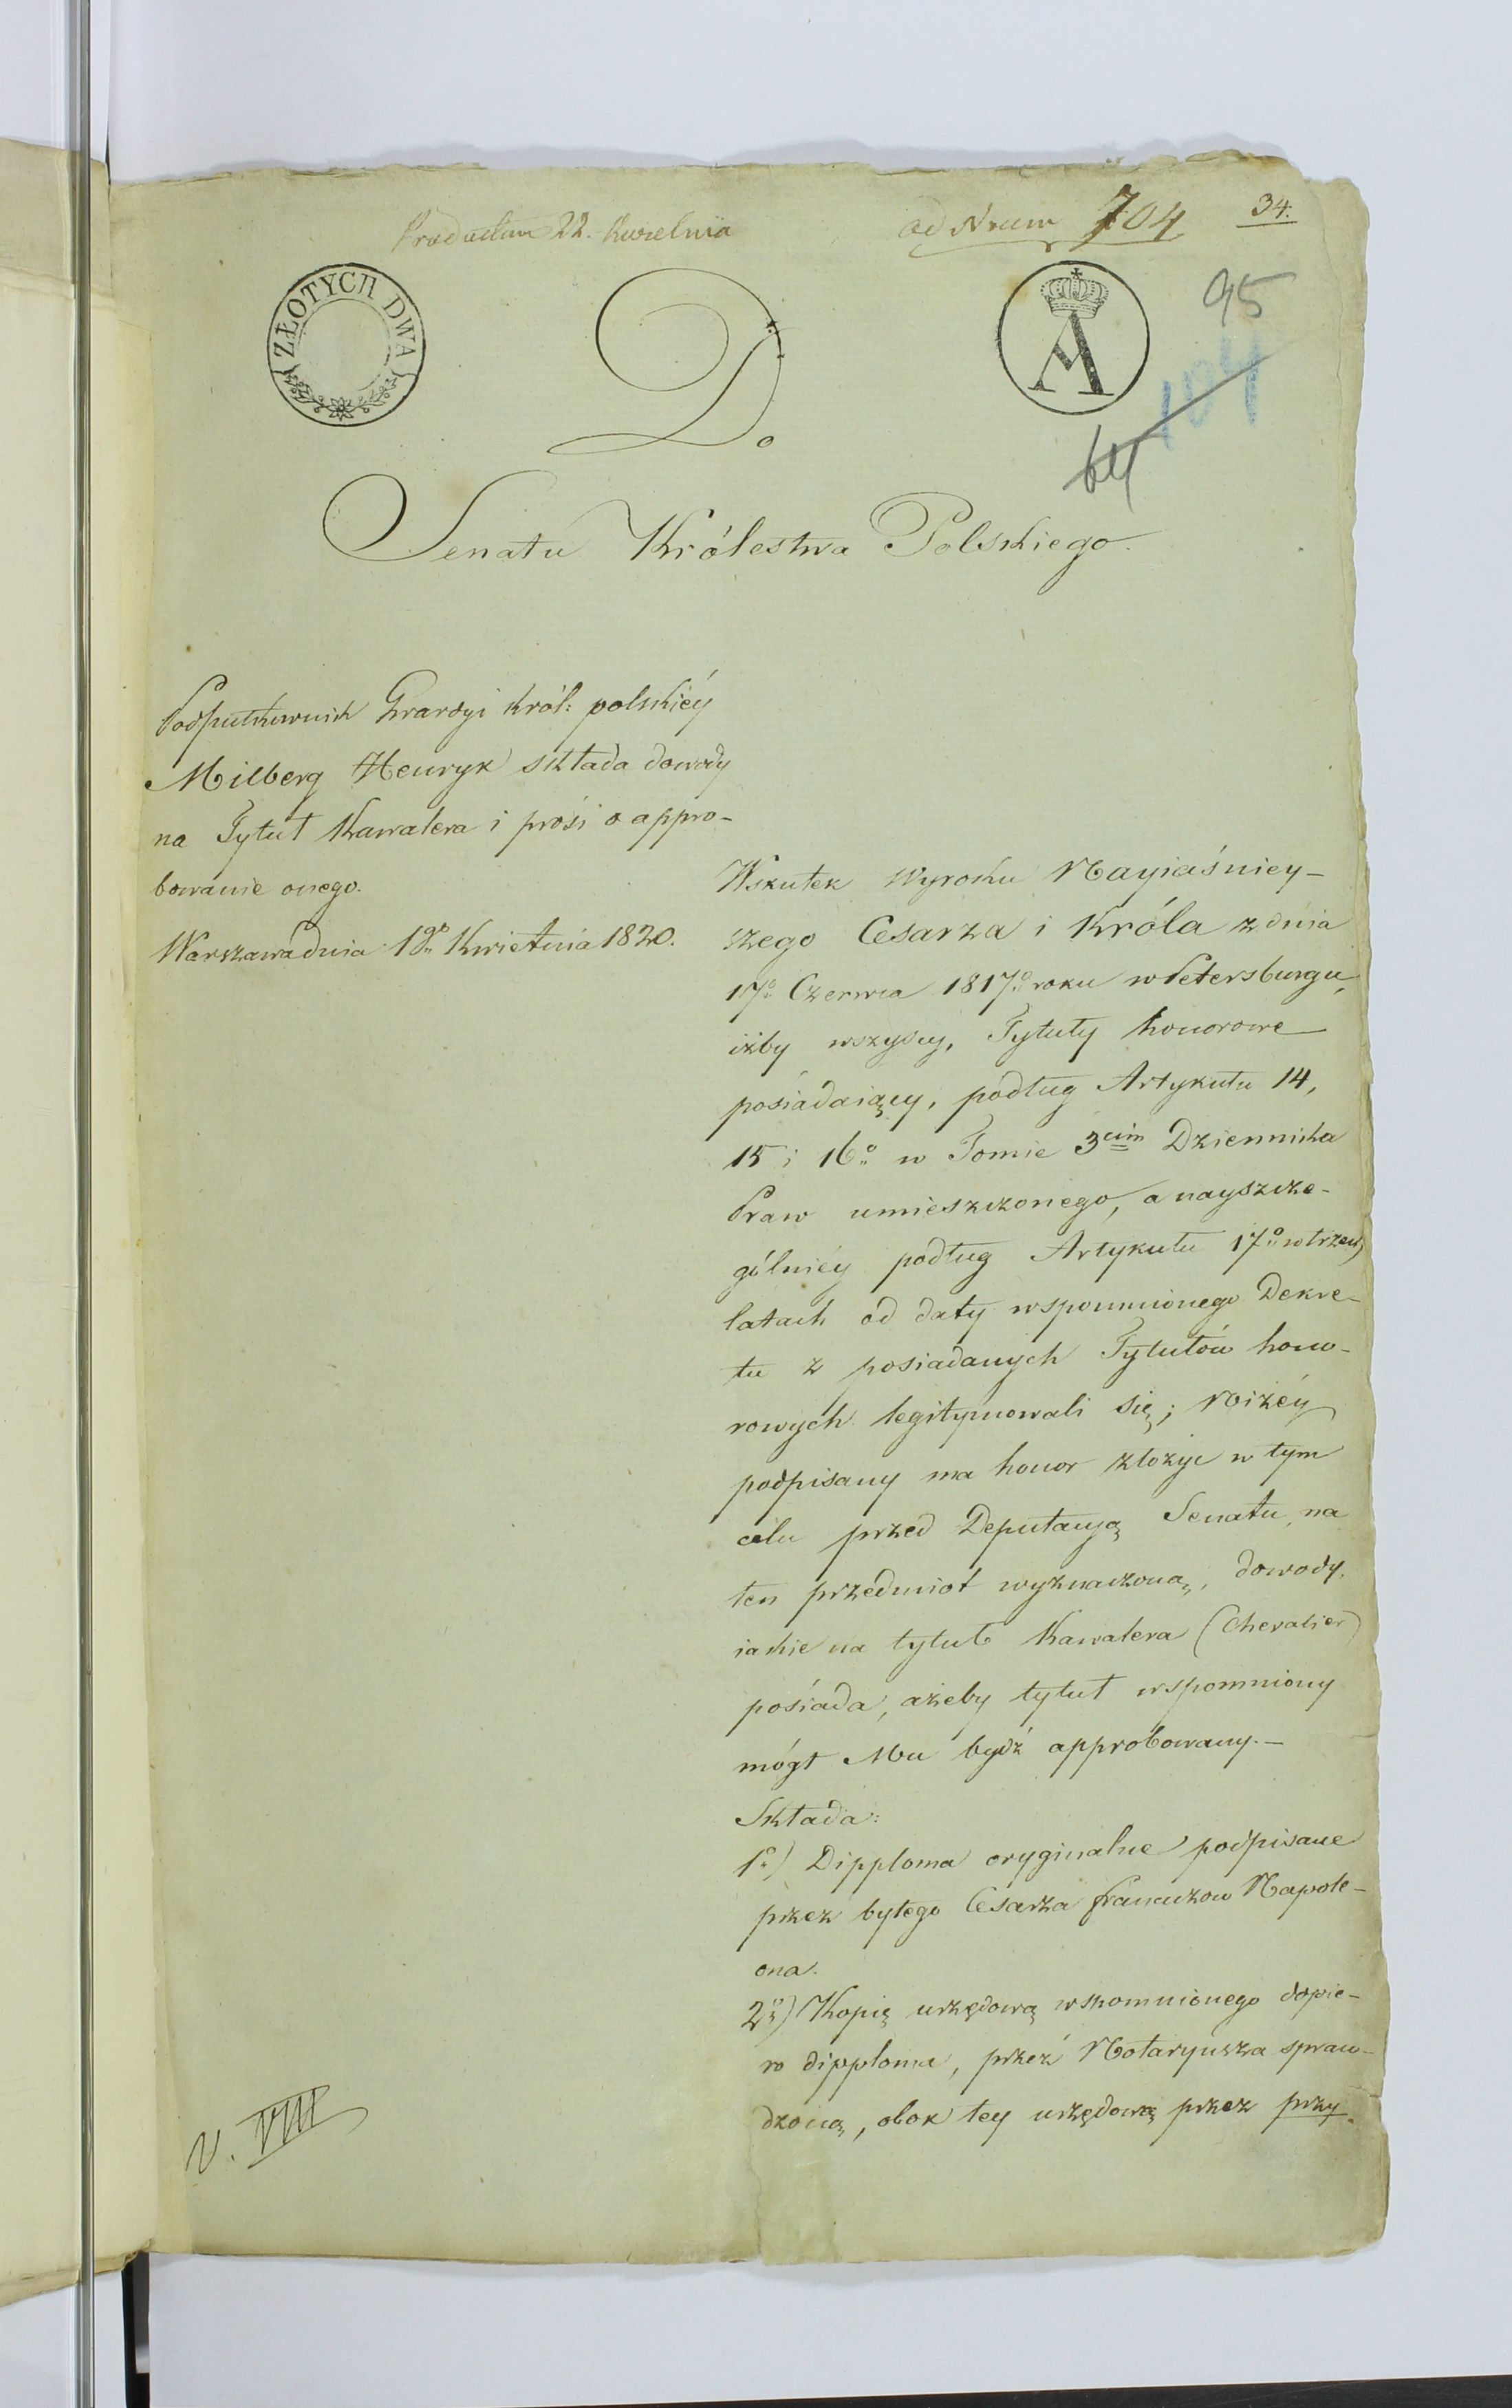 Productum 22. Kwietnia
ad Nrum 704
34.
ZŁOTYCH DWA
A
95
104
64
Do
Senatu Królestwa Polskiego.
Podpułkownik Gwardyi król: polskiéy
Milberg Henryk składa dowody
na Tytuł Kawalera i prosi o appro-
bowanie onego.
Warszawa dnia 19º Kwietnia 1820.
Wskutek Wyroku Nayiaśniey-
szego Cesarza i Króla z dnia
17º Czerwca 1817º roku w Petersburgu,
iżby wszyscy, Tytuły honorowe
posiadaiący, podług Artykułu 14,
15 i 16º w Tomie 3cim Dziennika
Praw umieszczonego, a nayszcze-
gólniéy podług Artykułu 17º w trzech
latach od daty wspomnionego Dekre-
tu z posiadanych Tytułów hono-
rowych legitymowali się; Niżéy
podpisany ma honor złożyc w tym
celu przed Deputacyą Senatu, na
ten przedmiot wyznaczoną, dowody,
iakie na tytuł Kawalera (Chevalier)
posiada, ażeby tytuł wspomniony
mógł Mu bydź approbowany.—
Składa:
1º) Dipploma oryginalne podpisane
przez byłego Césarza francuzow Napole-
ona.
2º) Kopią urzędową wspomnionego dopie-
ro dipploma, przez Notaryusza spraw-
dzoną, obok tey urzędową przez przy-
V. VIII